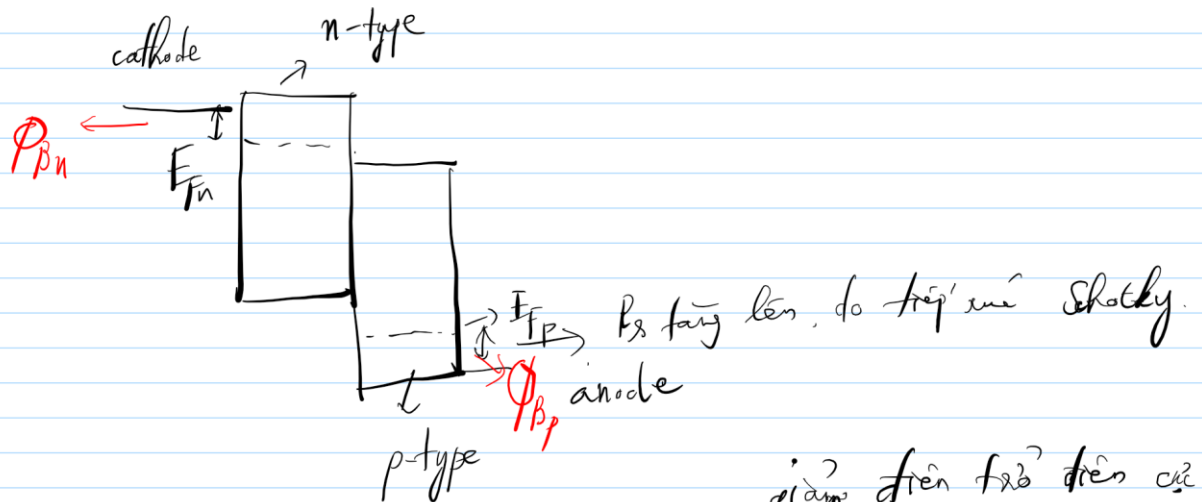 n-type
cathode
φBn
EFn
EFp
Rs tăng lên, do tiếp xúc Schotky.
φBp anode
p-type
giảm điện trở điện cực